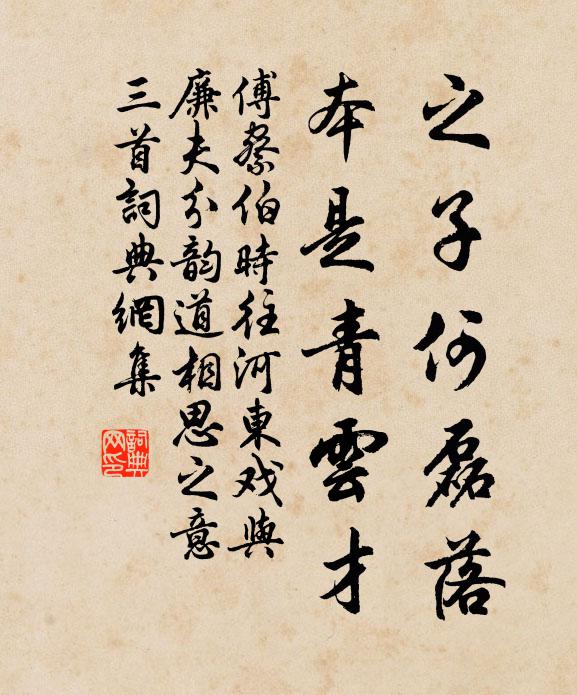 之子何磊落
本是青雲才
傅察伯時往河東戏與
廉夫分韵道相思之意
三首詞典網集
詞典网印